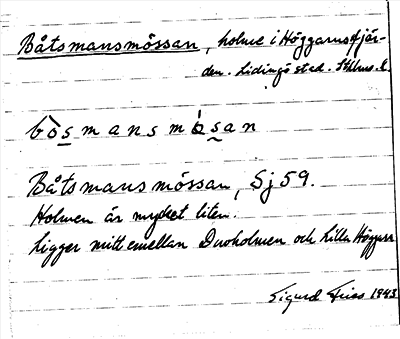 Båtsmansmössan, holme i Höggarnsfjär-
den. Lidingö stad. Sthlms. l.
bòsmansmósan
Båtsmansmössan, Sj 59.
Holmen är mycket liten.
Ligger mitt emellan Duvholmen och Lilla Höggarn
Sigurd 1943